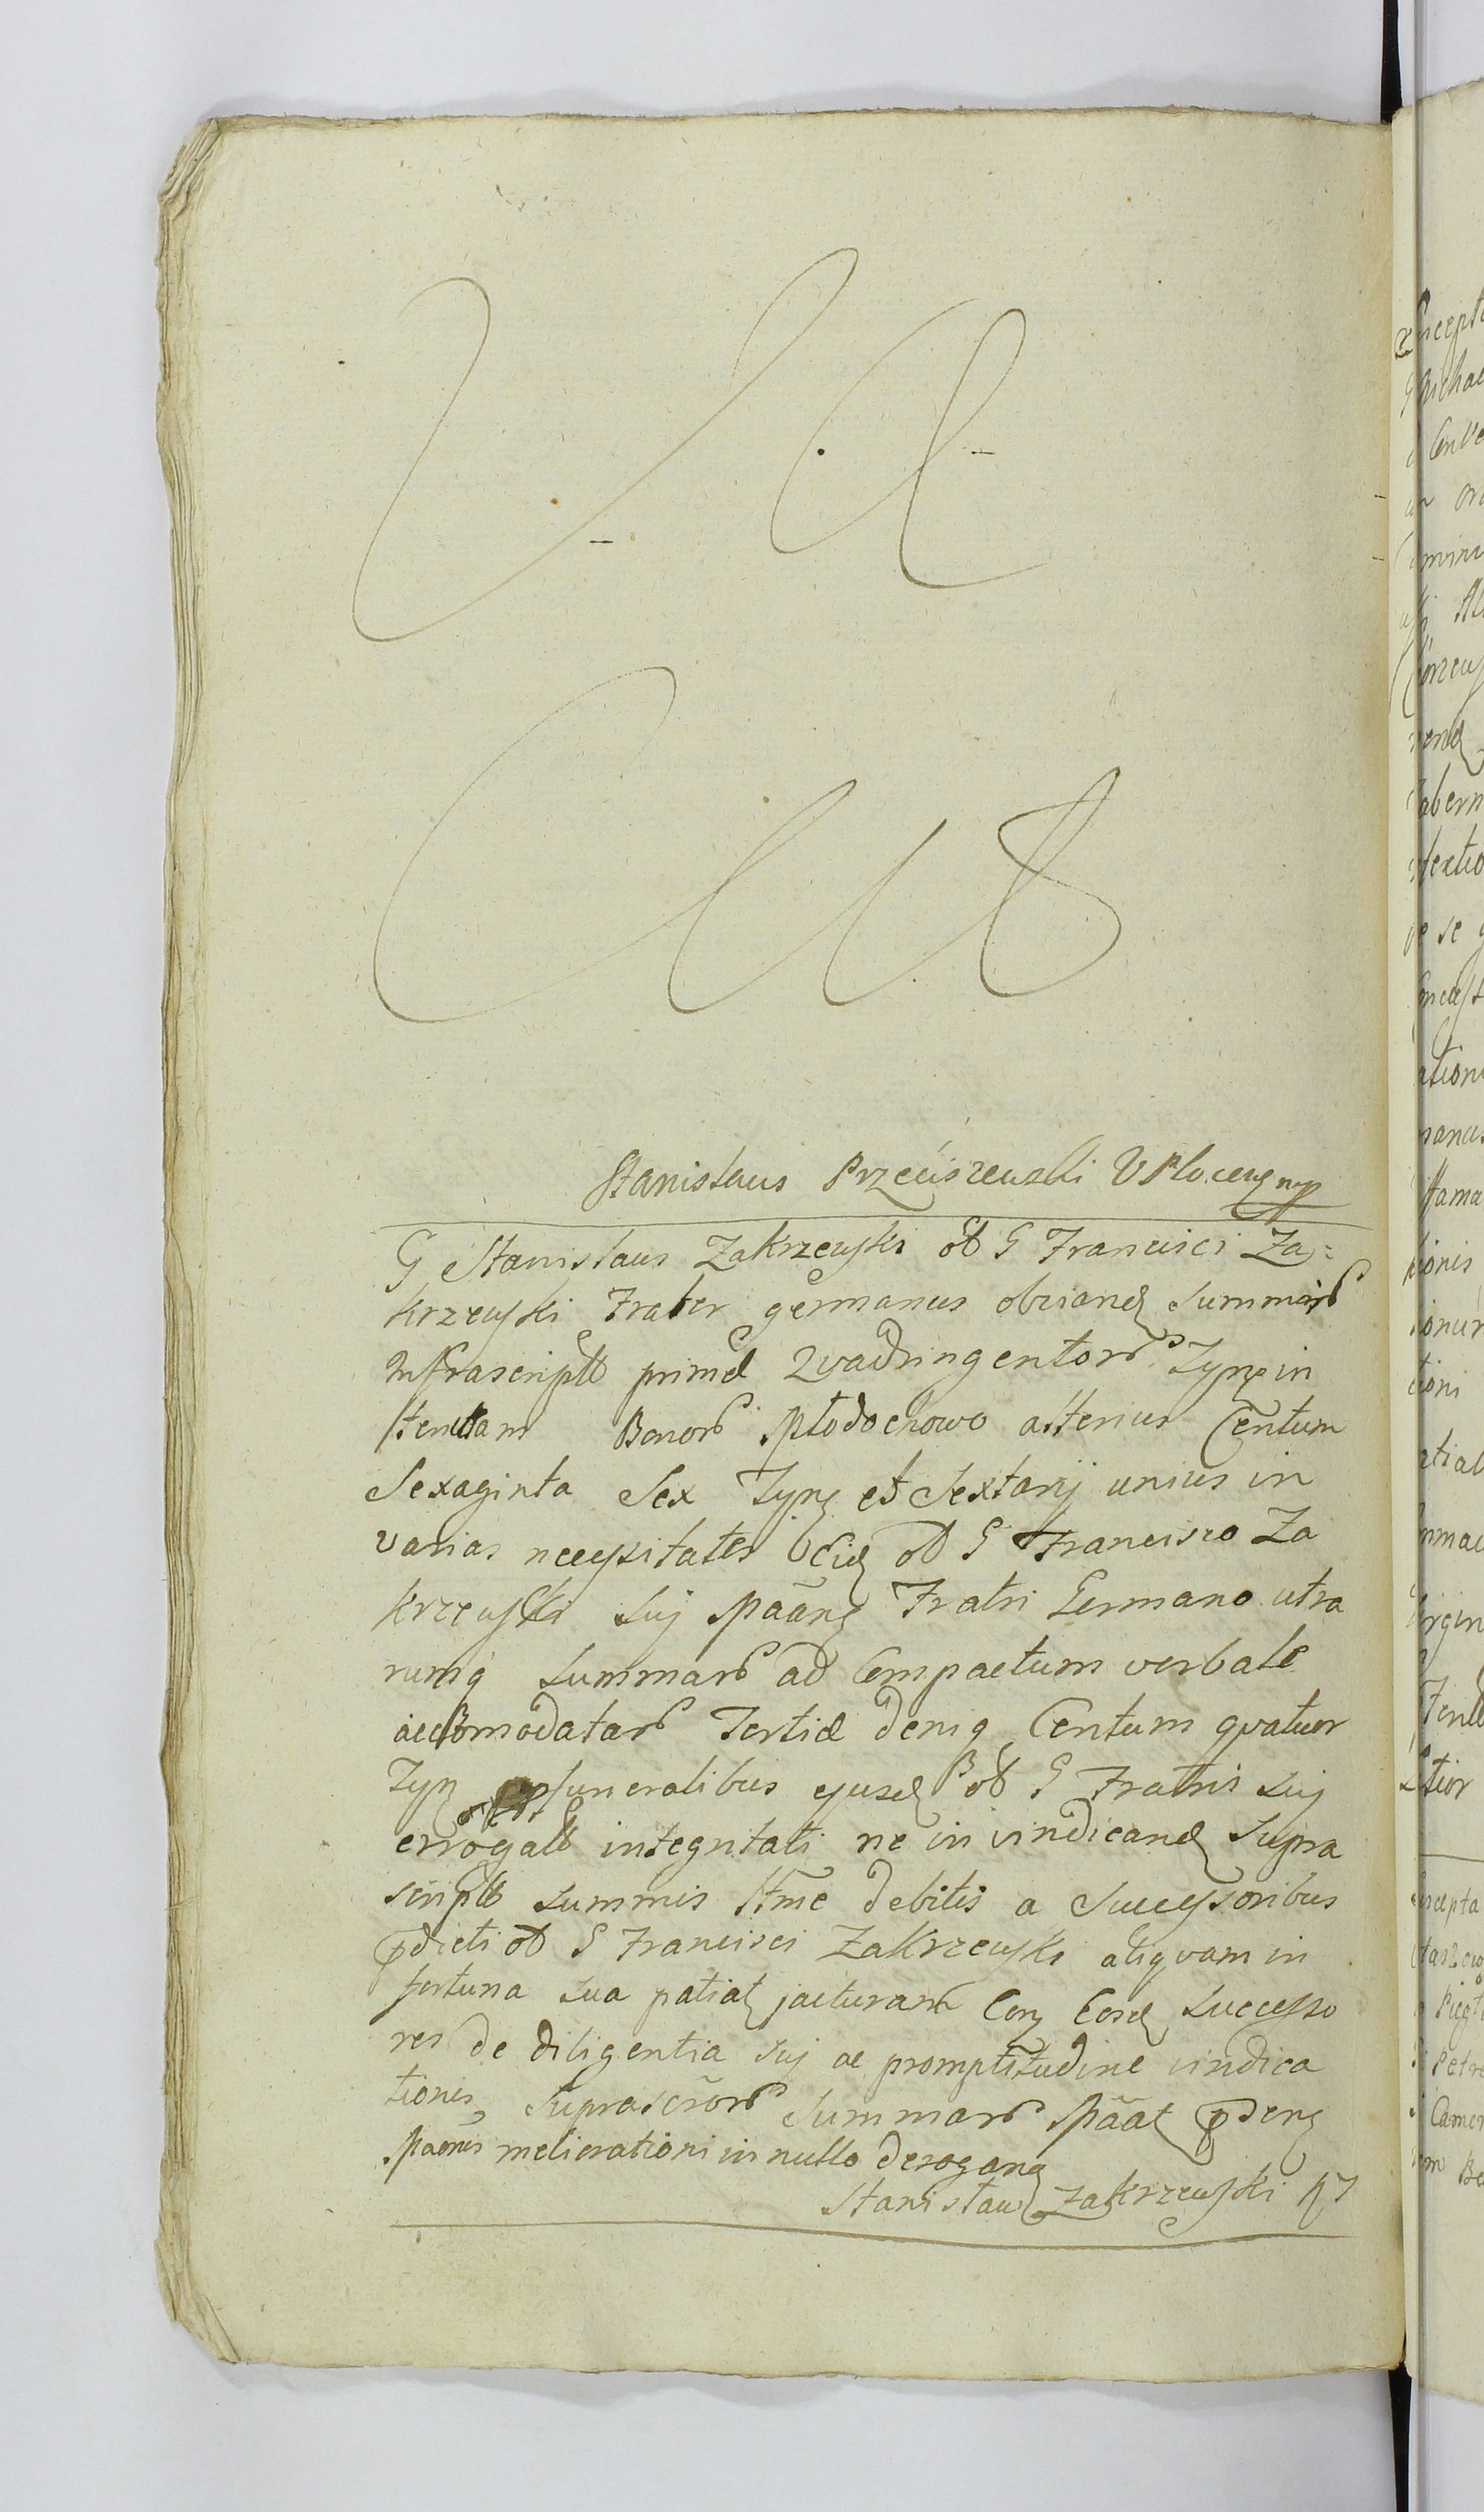 Vacuus
Stanislaus Przeciszewski VPlocen mp
G Stanislaus Zakrzewski ol G Francisci Za=
krzewski Frater germanus obviand summar
Infrascript primæ Quadringentor Tynf in
Bonor Płodochowo alterius Centum
Sexaginta Sex Tynf et Sextarij unius in
varias necessitates Eid ol G Francisco Za
krzewski suj Fratri Germano utra
rumq summar ad Compactum verbale
accomodatar Tertiæ deniq Centum qvatuor
Tynf funeralibus ejusd ol G Fratris suj
errogat integritati ne in vindicand supra
script summis ltme debitis a Successoribus
pdicti ol G Francisci Zakrzewski aliqvam in
fortuna sua patiat jacturam Con Eosd Successo
res de diligentia suj ac promptitudine vindica
tionis Suprascror Summar pden
meliorationi in nullo derogan
Stanisław Zakrzewski